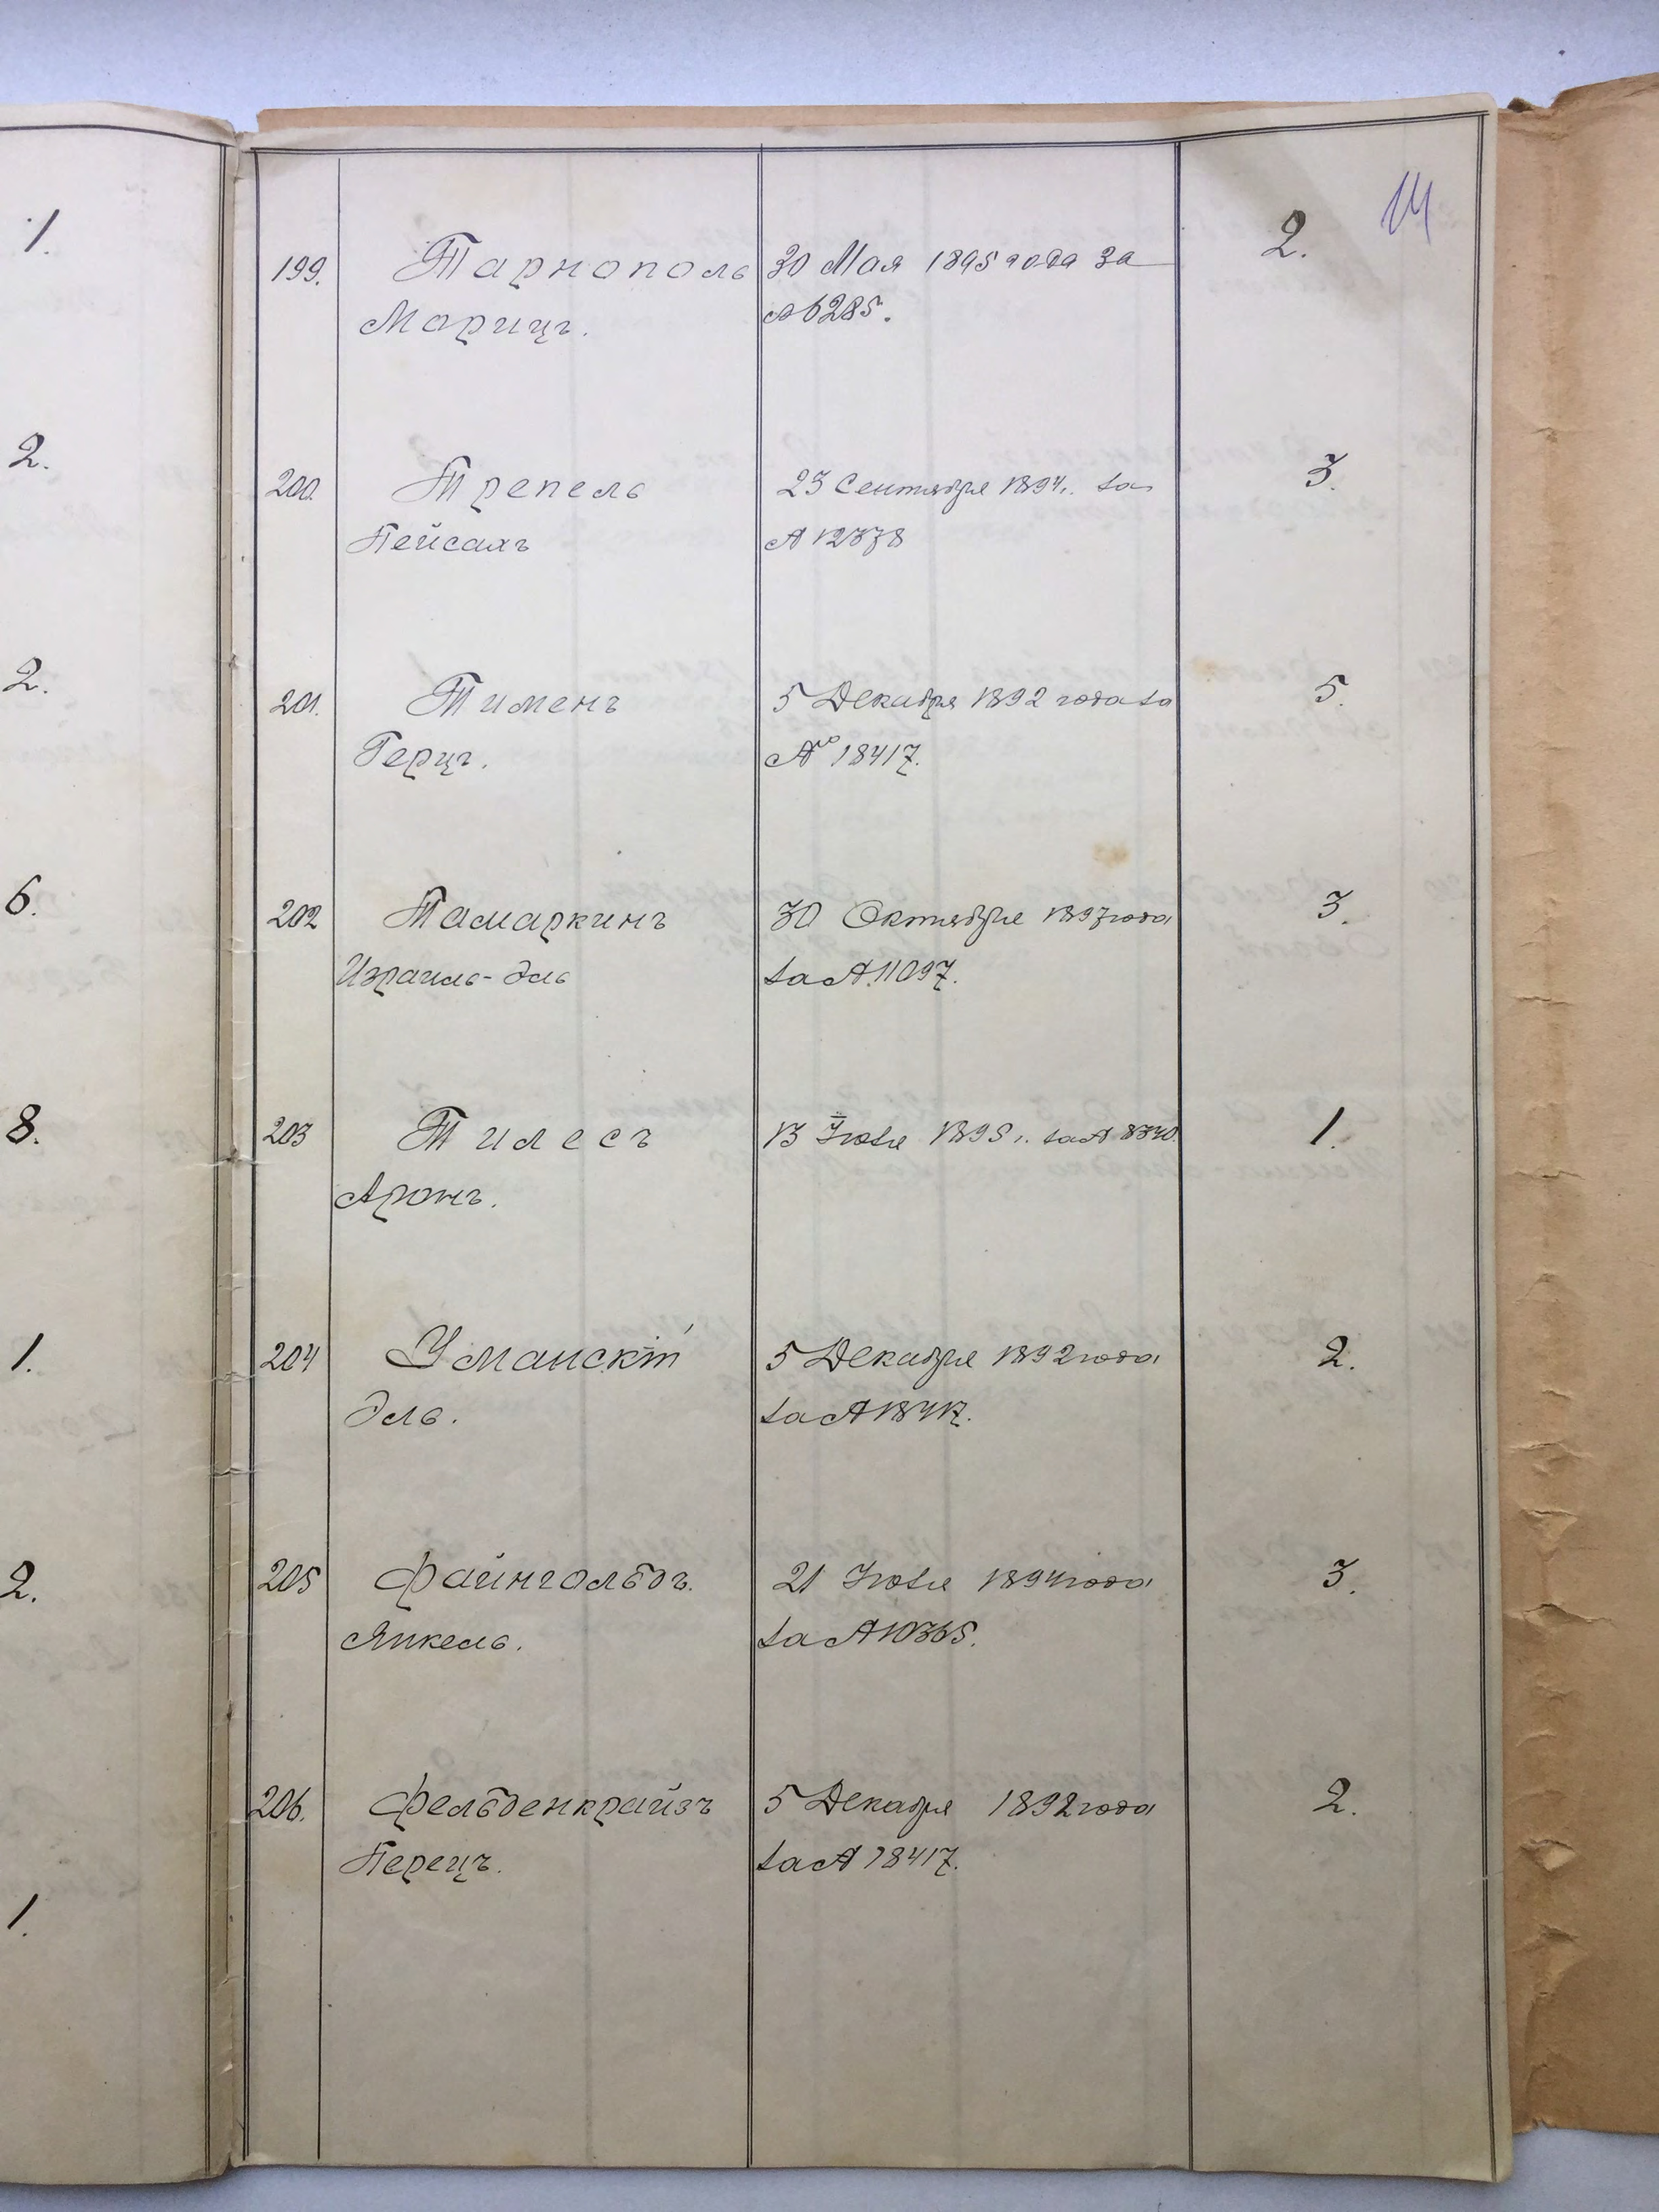 1.
2.
2.
6.
8.
1.
2.
1.
14
199. Тарнополь 30 Мая 1895 года за 2.
Морицъ. № 6285.
200. Трепель 23 Сентября 1894 г. за 3.
Пейсахъ №
201. Тименъ 5 Декабря 1892 года за 5.
Герцъ. № 18417.
202 Тамаркинъ 30 Октября 1897 года 3.
Израиль-Эль за № 11097.
203 Тилесъ 13 Іюля 1895 г. за № 8340. 1.
Аронъ.
204 Уманскій 5 Декабря 1892 года 2.
Эль. за № 18417.
205 Файнгольдъ. 21 Іюля 1894 года 3.
Янкель. за № 10365.
206. Фельденкрайзъ 5 Декабря 1892 года 2.
Перецъ. за № 18417.